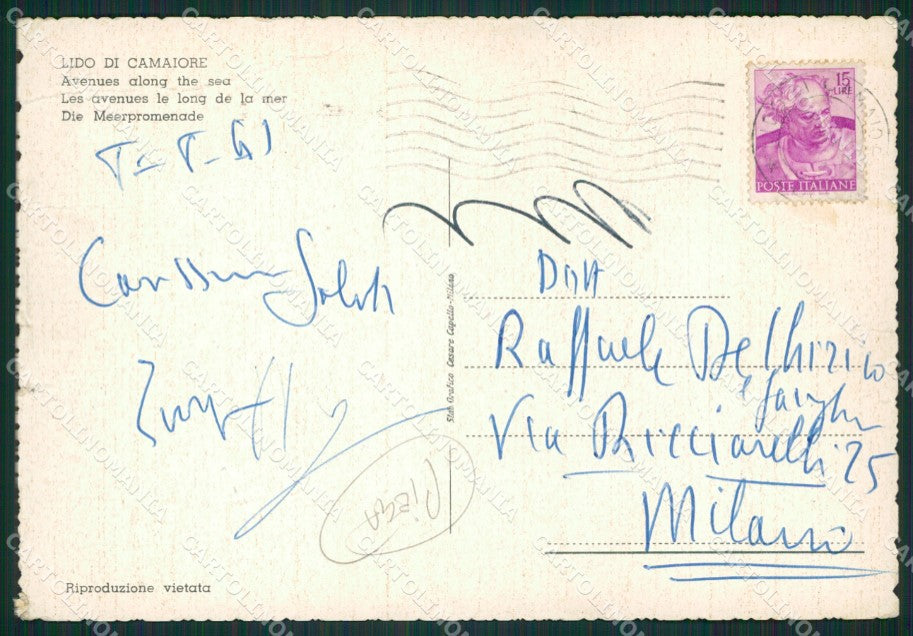 LIDO DI CAMAIORE
Avenues along the sea
Les avenues le long de la mer
Die Meerpromenade
15
LIRE
POSTE ITALIANE
Carissimi Saluti
Raffaele Del Chirico
e famiglia
Via Ricciarelli 25
Milano
Stab Grafico Cesare Capello-Milano
PIEGA
Riproduzione vietata
CARTOLINOMANIA